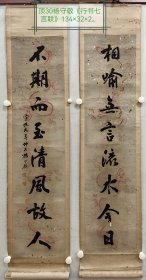 顶30杨守敬《行书七
言联》134×32×2。
相喻无言流水今日
不期而至清风故人